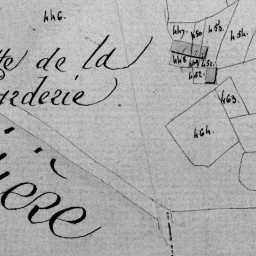 446.
447 450 453. 454.
448 449 451.
452.
tte de la
arderie
463.
464.
ière